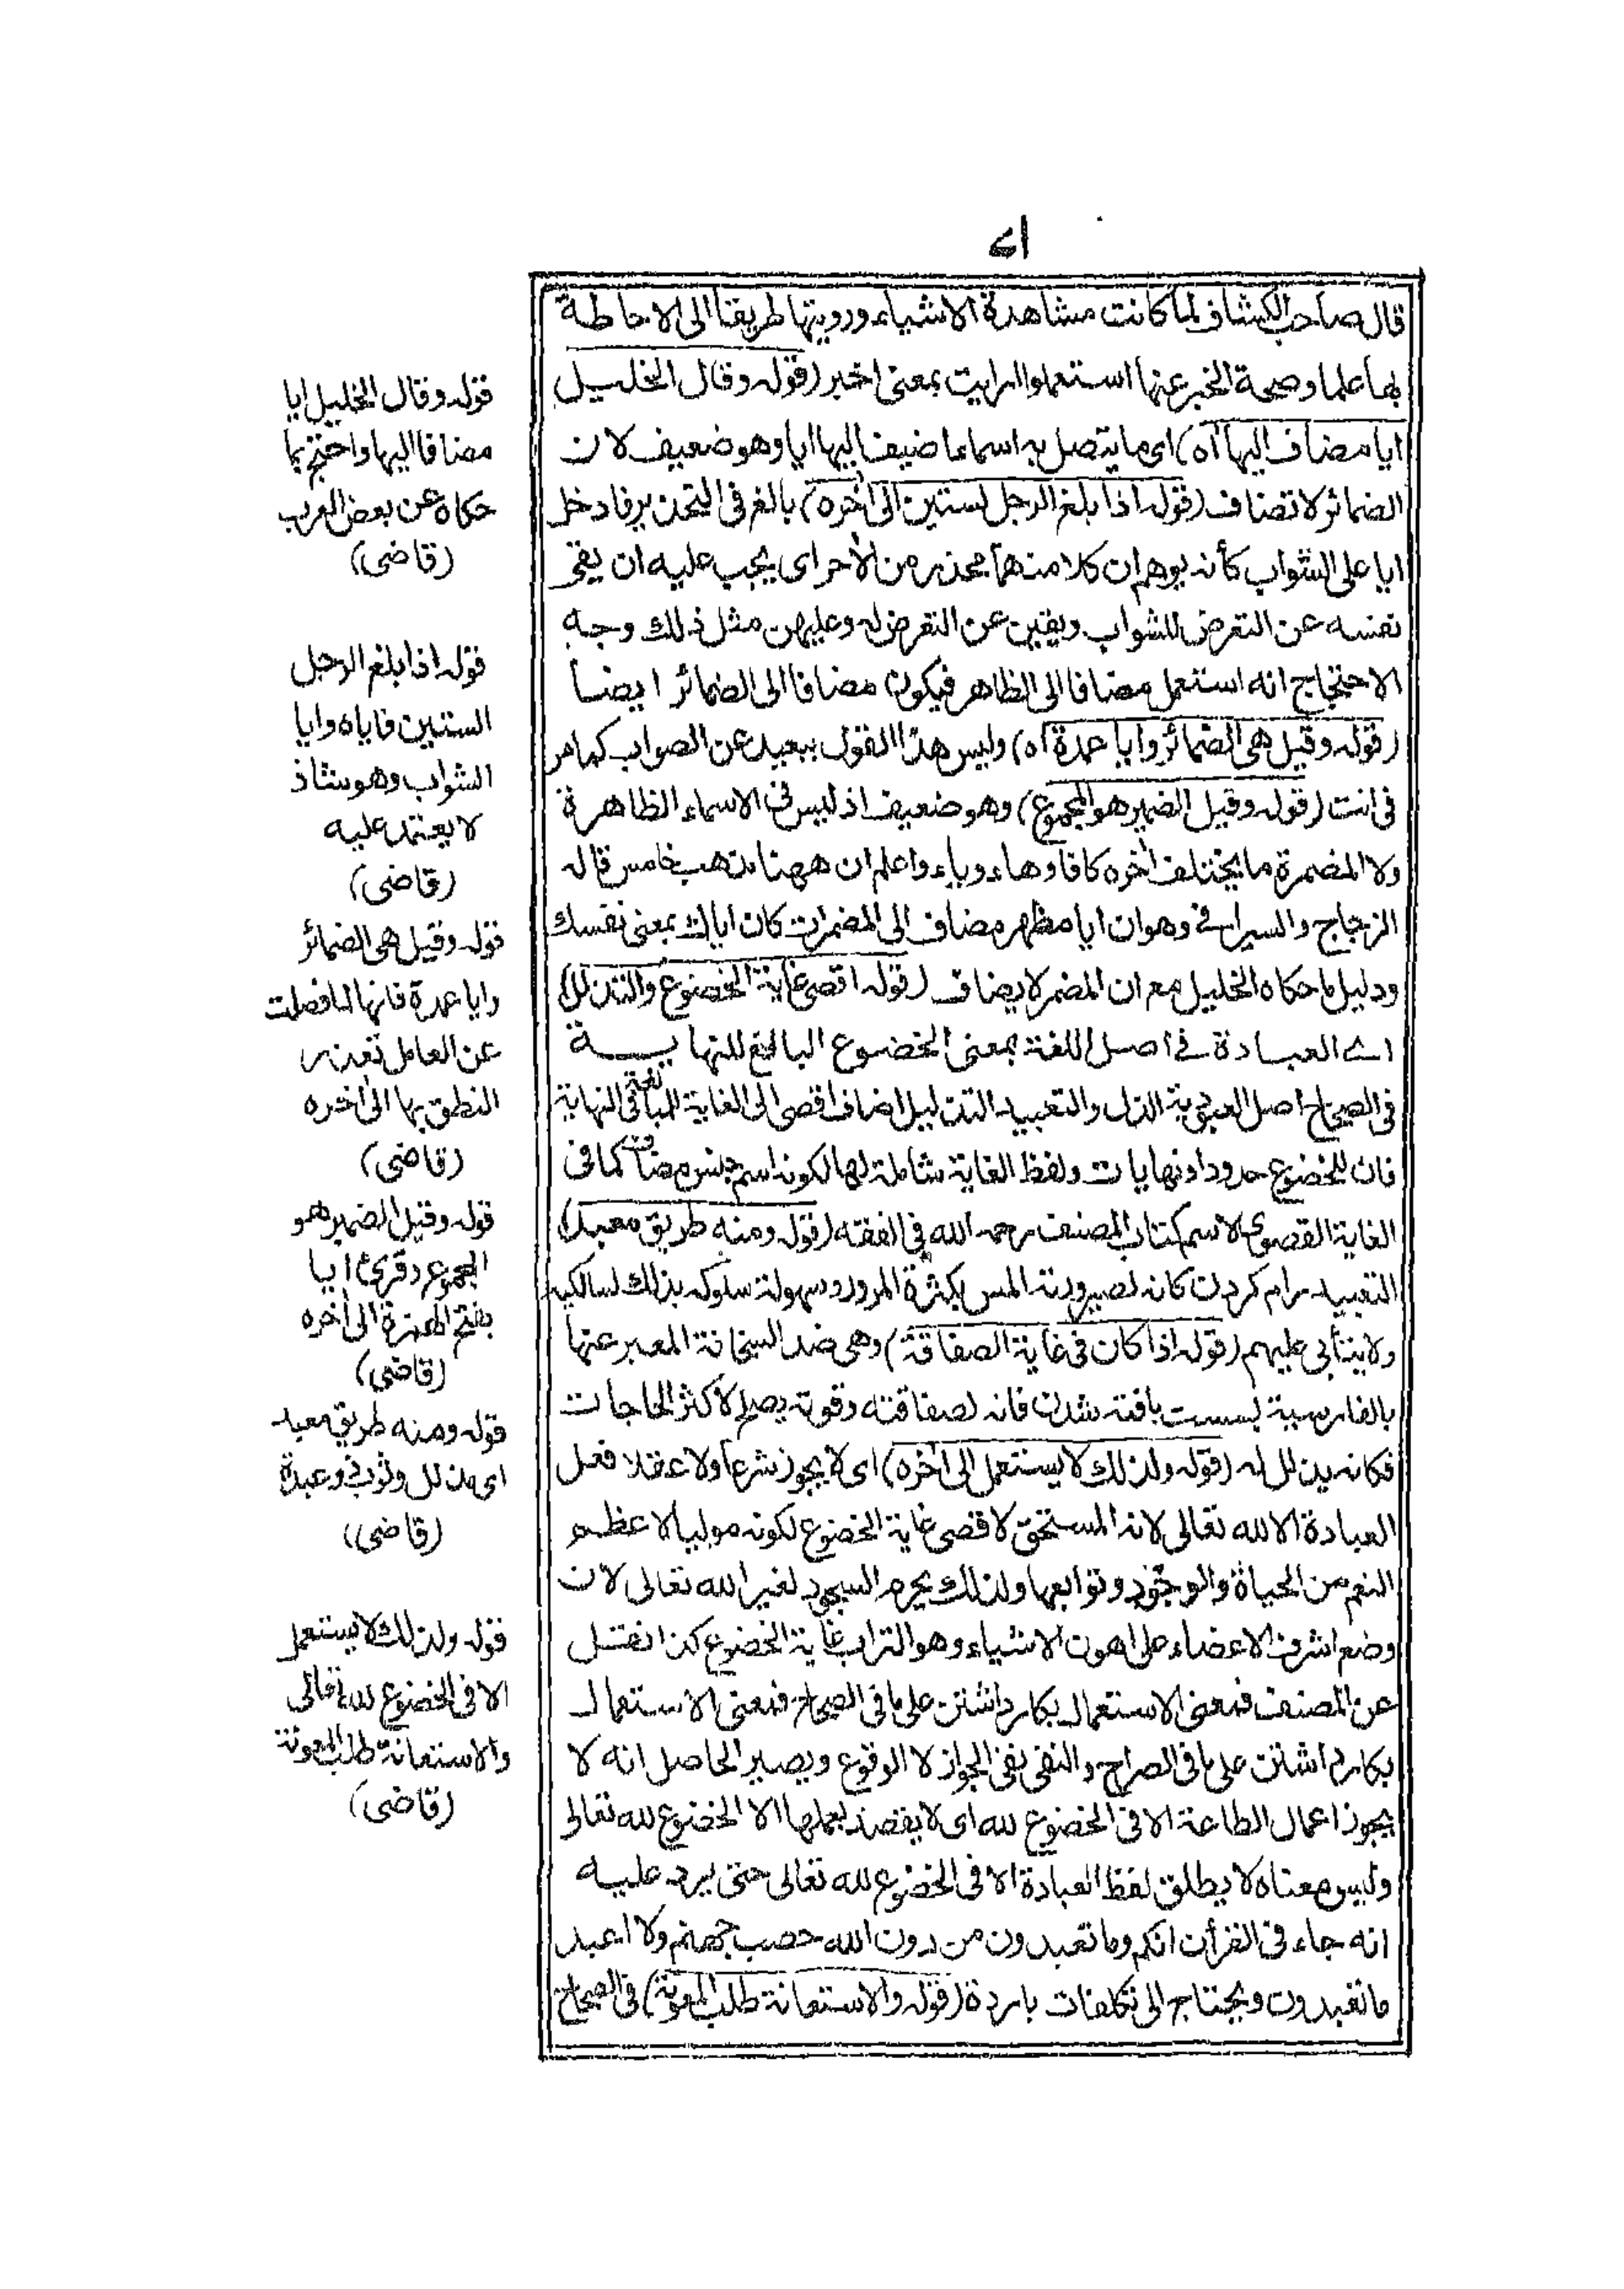 ٨١
قال صاحب الكشاف لما كانت مشاهدة الاشياء ورويتها طريقا الى الاحاطة
بها علما وصحة الخبر عنها استعملوا ارايت بمعنى اخبر (قوله وقال الخليل
ايا مضاف اليها آه) اى ما يتصل به اسماء اضيف اليها ايا وهو ضعيف لان
الضمائر لا تضاف (قوله اذا بلغ الرجل ستين الى اٰخره) بالغ فى التحذير فادخل
ايا على الشواب كأنه يوهم ان كلا منهما محذر من الاٰخر اى يجب عليه ان يقى
نفسه عن التعرض للشواب ويقين عن التعرض له وعليهن مثل ذلك وجه
الاحتجاج انه استعمل مضافا الى الظاهر فيكون مضافا الى الضمائر ايضا
(قوله وقيل هى الضمائر وايا عمدة آه) وليس هذا القول ببعيد عن الصواب كما مر
فى انت (قوله وقيل الضمير هو المجموع) وهو ضعيف اذ ليس فى الاسماء الظاهرة
ولا المضمرة ما يختلف اٰخره كافا وهاء وياء واعلم ان ههنا مذهب خامس قاله
الزجاج والسيرافى وهو ان ايا مظهر مضاف الى المضمرات كان اياك بمعنى نفسك
ودليل ما حكاه الخليل مع ان المضمر لا يضاف (قوله اقصى غاية الخضوع والتذلل)
اى العبادة فى اصل اللغة بمعنى الخضوع البالغ للنهاية
فى الصحاح اصل العبودية الذل والتعبيد التذليل اضاف اقصى الى الغاية المبالغة فى النهاية
فان للخضوع حدودا ونهايات ولفظ الغاية شاملة لها لكونه اسم جنس مضافا كما فى
الغاية القصوى لاسم كتاب المصنف رحمه الله فى الفقه (قوله ومنه طريق معبد)
التعبيد رام كردن كانه لصيرورته المس بكثرة المرور وسهولة سلوكه بذلك لسالكيه
ولا يتأبى عليهم (قوله اذا كان فى غاية الصفاقة) وهى ضد السخافة المعبر عنها
بالفارسية بسست بافته شدن فانه لصفاقته وقوته يصلح لاكثر الحاجات
فكانه يذلل له (قوله ولذلك لا يستعمل الى اٰخره) اى لا يجوز شرعا ولا عقلا فعل
العبادة الا لله تعالى لانه المستحق لاقصى غاية الخضوع لكونه موليا لاعظم
النعم من الحياة والوجود وتوابعها ولذلك يحرم السجود لغير الله تعالى لان
وضع اشرف الاعضاء على اهون الاشياء وهو التراب غاية الخضوع كذا نقل
عن المصنف فمعنى الاستعمال بكار داشتن على ما فى الصحاح فمعنى الاستعمال
بكار داشتن على ما فى الصراح والنفى نفى الجواز لا الوقوع ويصير الحاصل انه لا
يجوز اعمال الطاعة الا فى الخضوع لله اى لا يقصد بعملها الا الخضوع لله تعالى
وليس معناه لا يطلق لفظ العبادة الا فى الخضوع لله تعالى حتى يرد عليه
انه جاء فى القرأن انكم وما تعبدون من دون الله حصب جهنم ولا اعبد
ما تعبدون ويحتاج الى تكلفات باردة (قوله والاستعانة طلب المعونة) فى الصحاح
قوله وقال الخليل ايا
مضافا اليها واحتج بما
حكاه عن بعض العرب
(قاضى)
قوله اذا بلغ الرجل
الستين فاياه وايا
الشواب وهو شاذ
لا يعتمد عليه
(قاضى)
قوله وقيل هى الضمائر
وايا عمدة فانها لما فصلت
عن العامل تعذر
النطق بها الى اٰخره
(قاضى)
قوله وقيل الضمير هو
المجموع وقرئ ايا
بفتح الهمزة الى اٰخره
(قاضى)
قوله ومنه طريق معبد
اى مذلل وثوب ذو عبدة
(قاضى)
قوله ولذلك لا يستعمل
الا فى الخضوع لله تعالى
والاستعانة طلب المعونة
(قاضى)